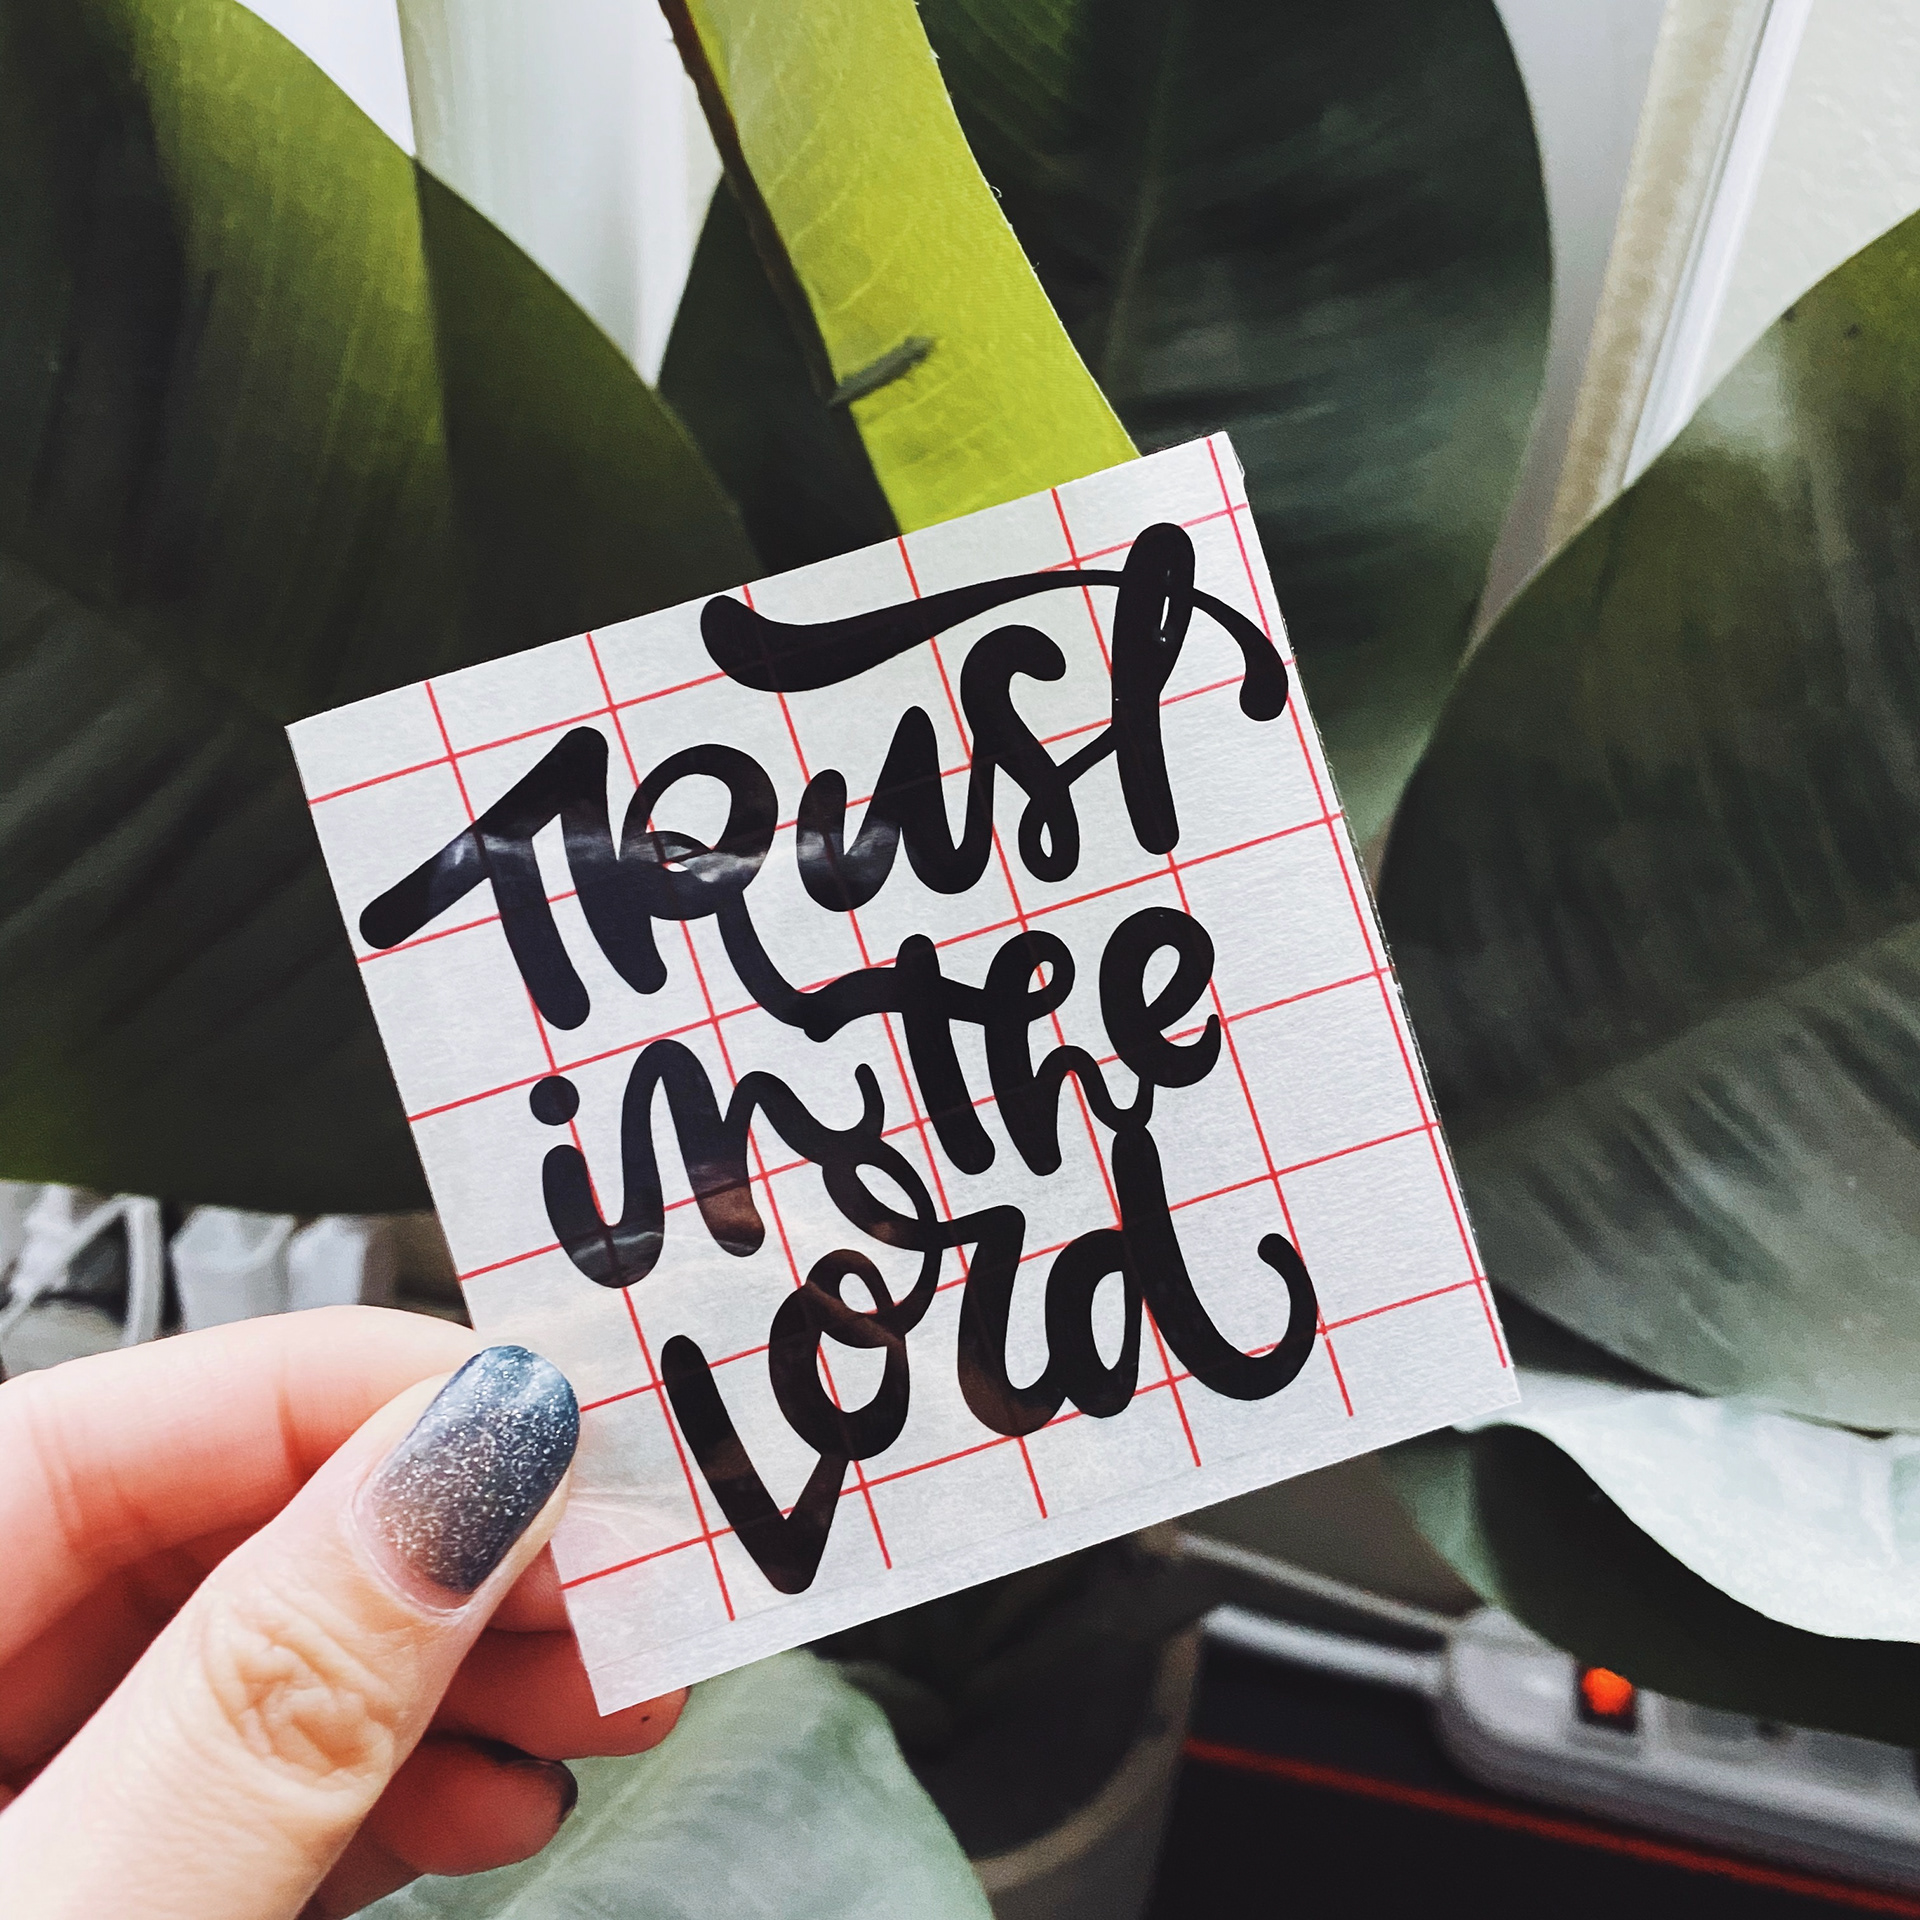 Trust
in the
Lord